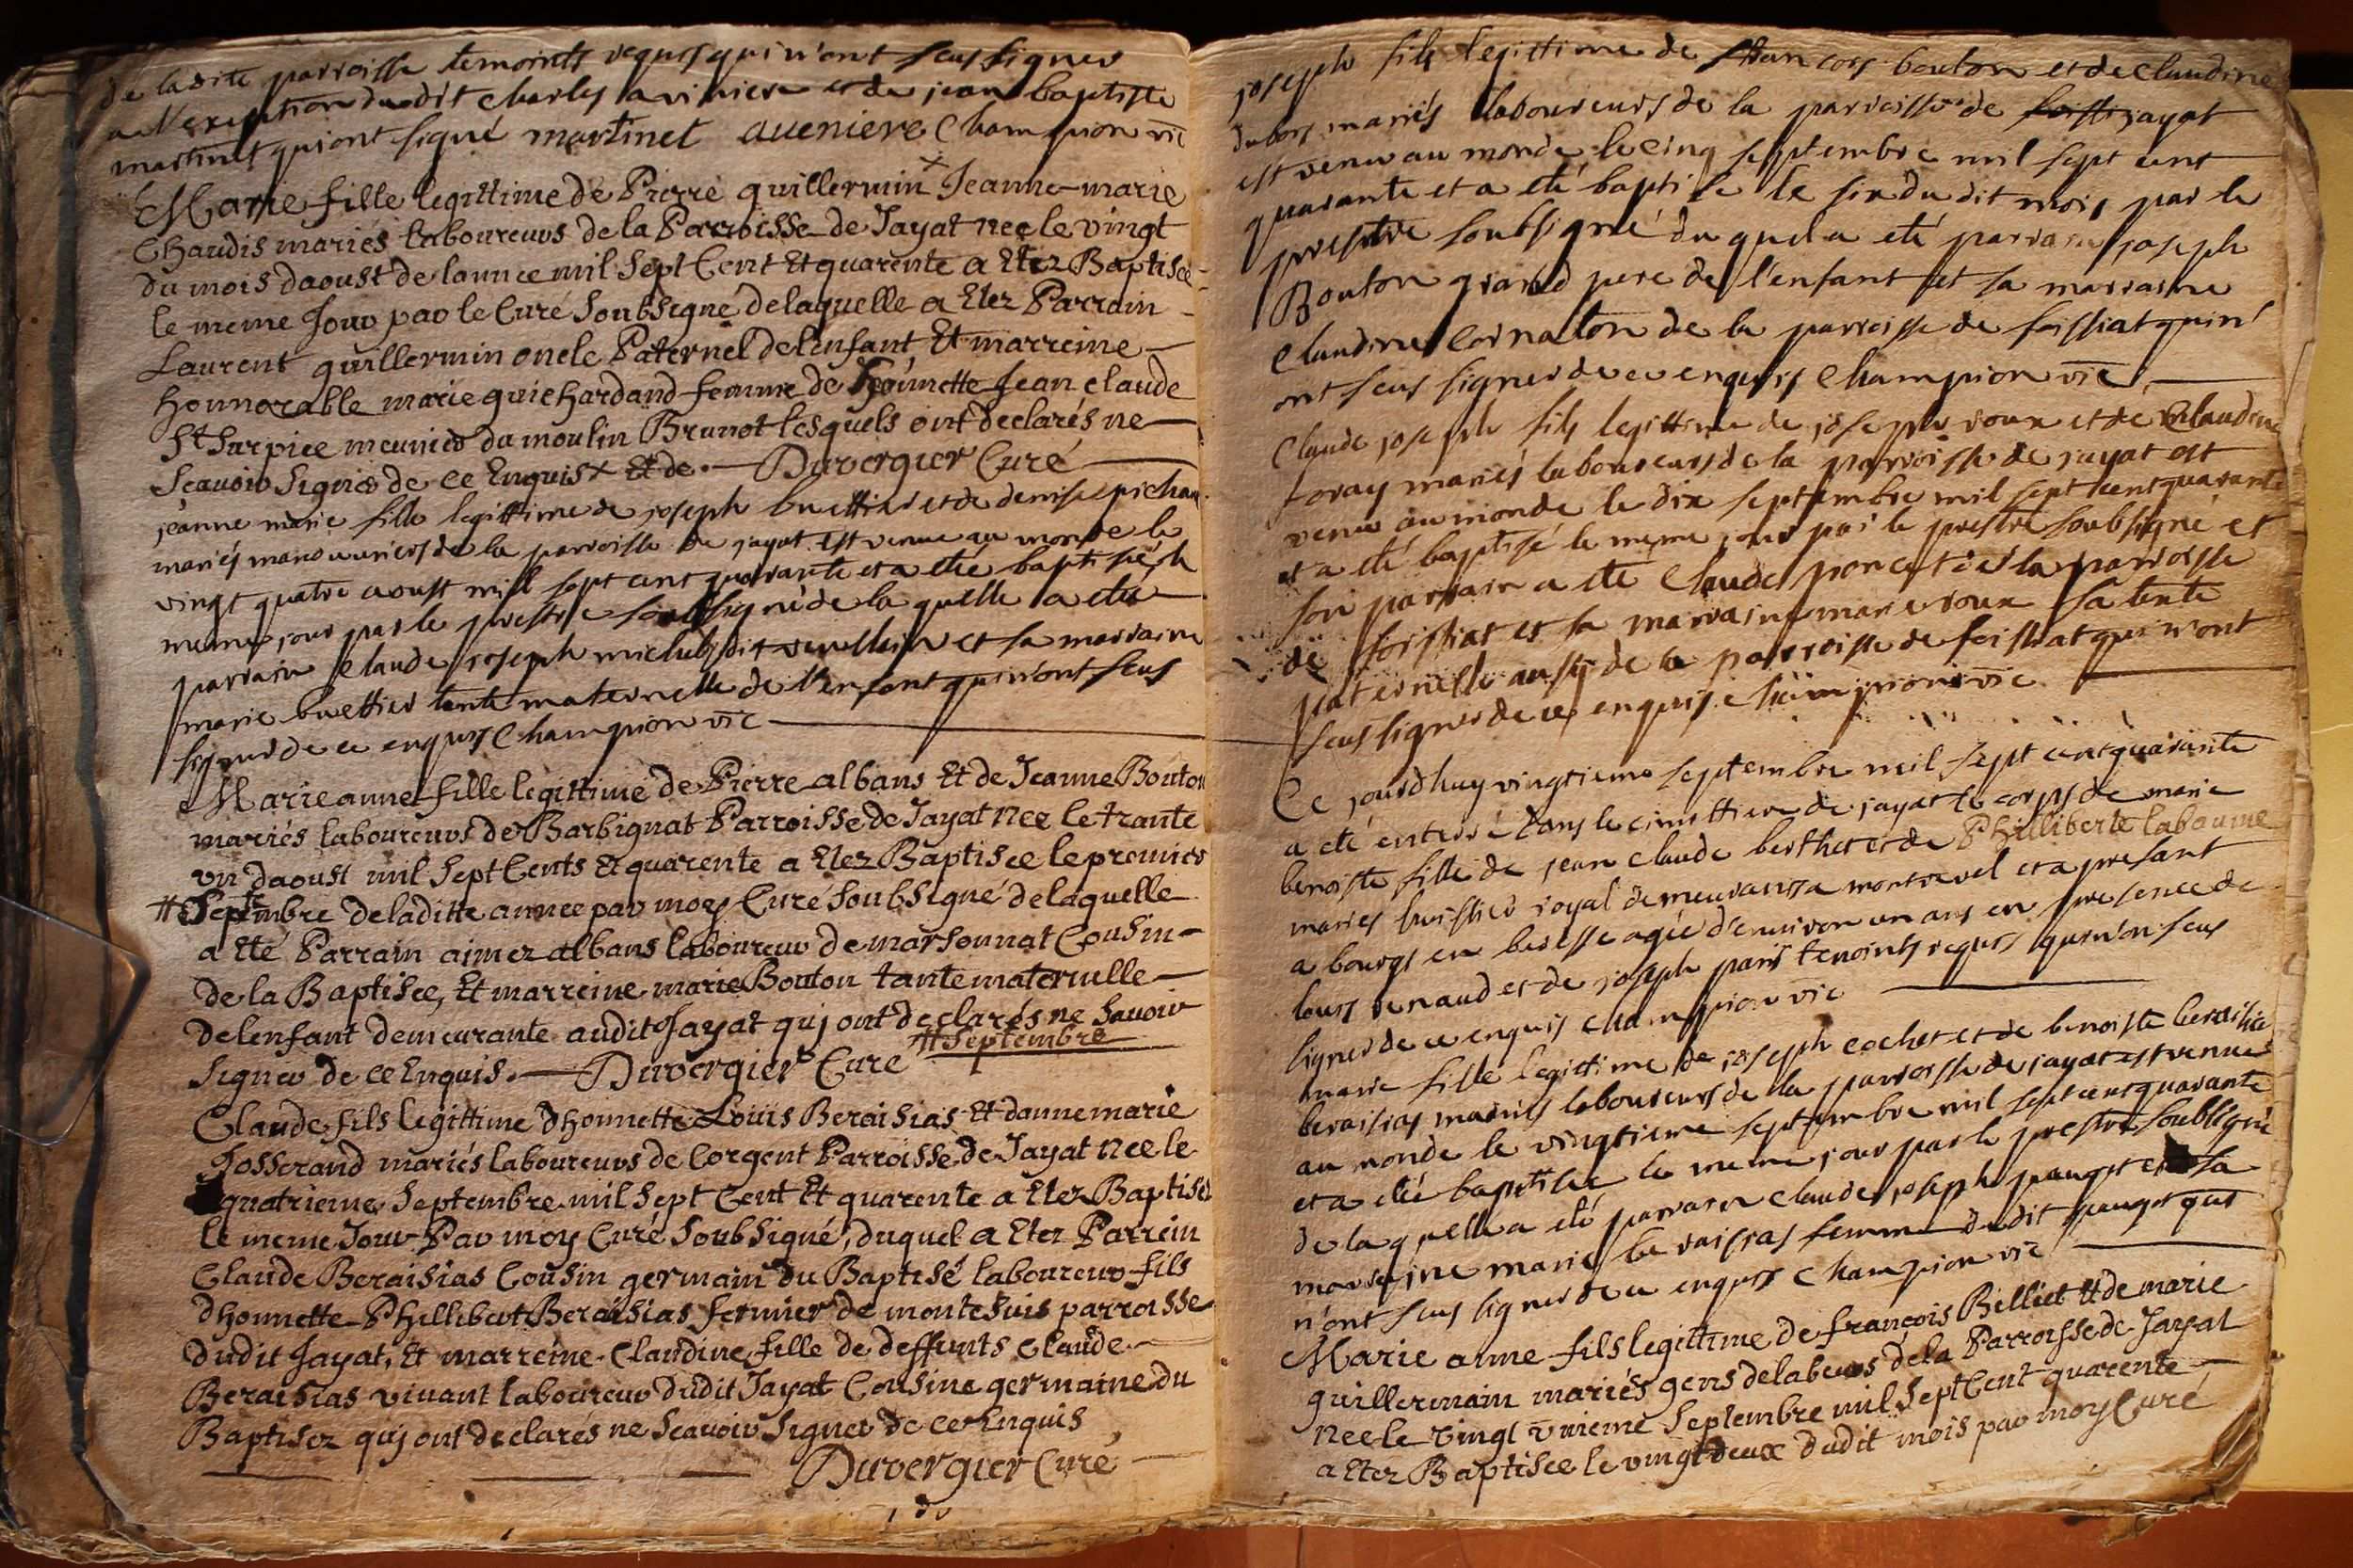 de ladite parroisse temoints requis qui n'ont sceus signer
a l'exeption dudit Charles aviniere et de jean baptiste
martinet qui ont signé martinet aueniere Champion vic
Marie fille legittime de Pierre guillermin x Jeanne-marie
Chaudis mariés laboureurs de la Parroisse de Jayat nee le vingt
du mois daoust de lannee mil Sept Cent Et quarente a Etez Baptisée
le meme Jour par le Curé Soubsigné delaquelle a Etez Parrain
Laurent guillermin oncle Paternel delenfant Et marreine
honnorable marie guichardand femme de honnette Jean claude
St Sarpice meunier du moulin Brunot lesquels ont declarés ne
Scauoir Signer de ce Enquis x Et de. Duvergier Curé
jeanne marie fille legittime de joseph buettier et de denise pichan
mariés manouuriers de la parroisse de jayat est venue au monde le
vingt quatre aoust mill sept cent quarante et a etée baptisée le
meme jour par le prestre soubsigné de la quelle a eté
parrain Claude joseph michel dit et sa marraine
marie buettier tante maternelle de l'enfant qui n'ont sceus
signer de ce enquis Champion vic
Marie anne fille legittime de Pierre albans Et de Jeanne Bouton
mariés laboureurs de Barbignat Parroisse de Jayat nee le trante
un daoust mil Sept Cents Et quarente a Etez Baptisée le premier
# Septembre deladitte annee par moy Curé Soubsigné delaquelle
a Eté Parrain aimez albans laboureur de marsonnat Cousin
de la Baptisée, Et marreine marie Bouton tante maternelle
delenfant demeurante audit Jayat qui ont declarés ne Sauoir
Signer de ce Enquis. Duvergier Curé # Septembre
Claude fils legittime dhonnette Louis Beraisias Et danne marie
Josserand mariés laboureurs de Corgent Parroisse de Jayat nee le
quatrieme Septembre mil Sept Cent Et quarente a Etez Baptisé
le meme Jour Par moy Curé Soubsigné, duquel a Etez Parrein
Claude Beraisias Cousin germain du Baptisé laboureur fils
dhonnette Phillibert Beraisias fermier de montesuis parroisse
dudit Jayat, Et marreine Claudine fille de deffunts Claude
Beraisias viuant laboureur dudit Jayat Cousine germaine du
Baptisez qui ont declarés ne Scauoir Signer de ce Enquis
Duvergier Curé
joseph fils legittime de francois bouton et de claudine
dubois mariés laboureurs de la parroisse de jayat
est venu au monde le cinq septembre mil sept cent
quarante et a eté baptisé le six du dit mois par le
prestre soubsigné du quel a eté parrain joseph
Bouton grand pere de l'enfant et sa marraine
Claudine Cornaton de la parroisse de foissiat qui n'
ont sceus signer de ce enquis Champion vic
Claude joseph fils legittime de joseph roux et de Claudine
mariés laboureurs de la parroisse de jayat est
venu au monde le dix septembre mil sept cent quarante
et a eté baptisé le meme jour par le prestre soubsigné et
son parrain a eté Claude poncet de la parroisse
de foissiat et sa marraine marie roux sa tente
paternelle ausy de la parroisse de foissiat qui n'ont
sceus signer de ce enquis Champion vic
Ce jourdhuy vingtieme septembre mil sept cent quarante
a eté enterré dans le cimettiere de jayat le corps de marie
benoiste fille de jean claude berthet et de Philliberte labaume
mariés huissier royal demeurants a montrevel et a presant
a bourg en bresse agée d'environ un ans en presence de
louis renaud et de joseph paris temoints requis qui n'on sceus
signer de ce enquis Champion vic
marie fille legittime de joseph cochet et de benoiste beraisias
beraisias mariés laboureurs de la parroisse de jayat est venue
au monde le vingtieme septembre mil sept cent quarante
et a etée baptisée le meme jour par le prestre soubsigné
de la quelle a eté parrain claude joseph pauget et sa
marraine marie beraisias femme dudit pauget qui
n'ont sceus signer de ce enquis Champion vic
Marie anne fils legittime de françois Billiet Et de marie
guillermain mariés gens de labeurs dela Parroisse de Jayat
nee le vingt unieme Septembre mil Sept Cent quarente
a Etez Baptisée le vingt deux dudit mois par moy Curé